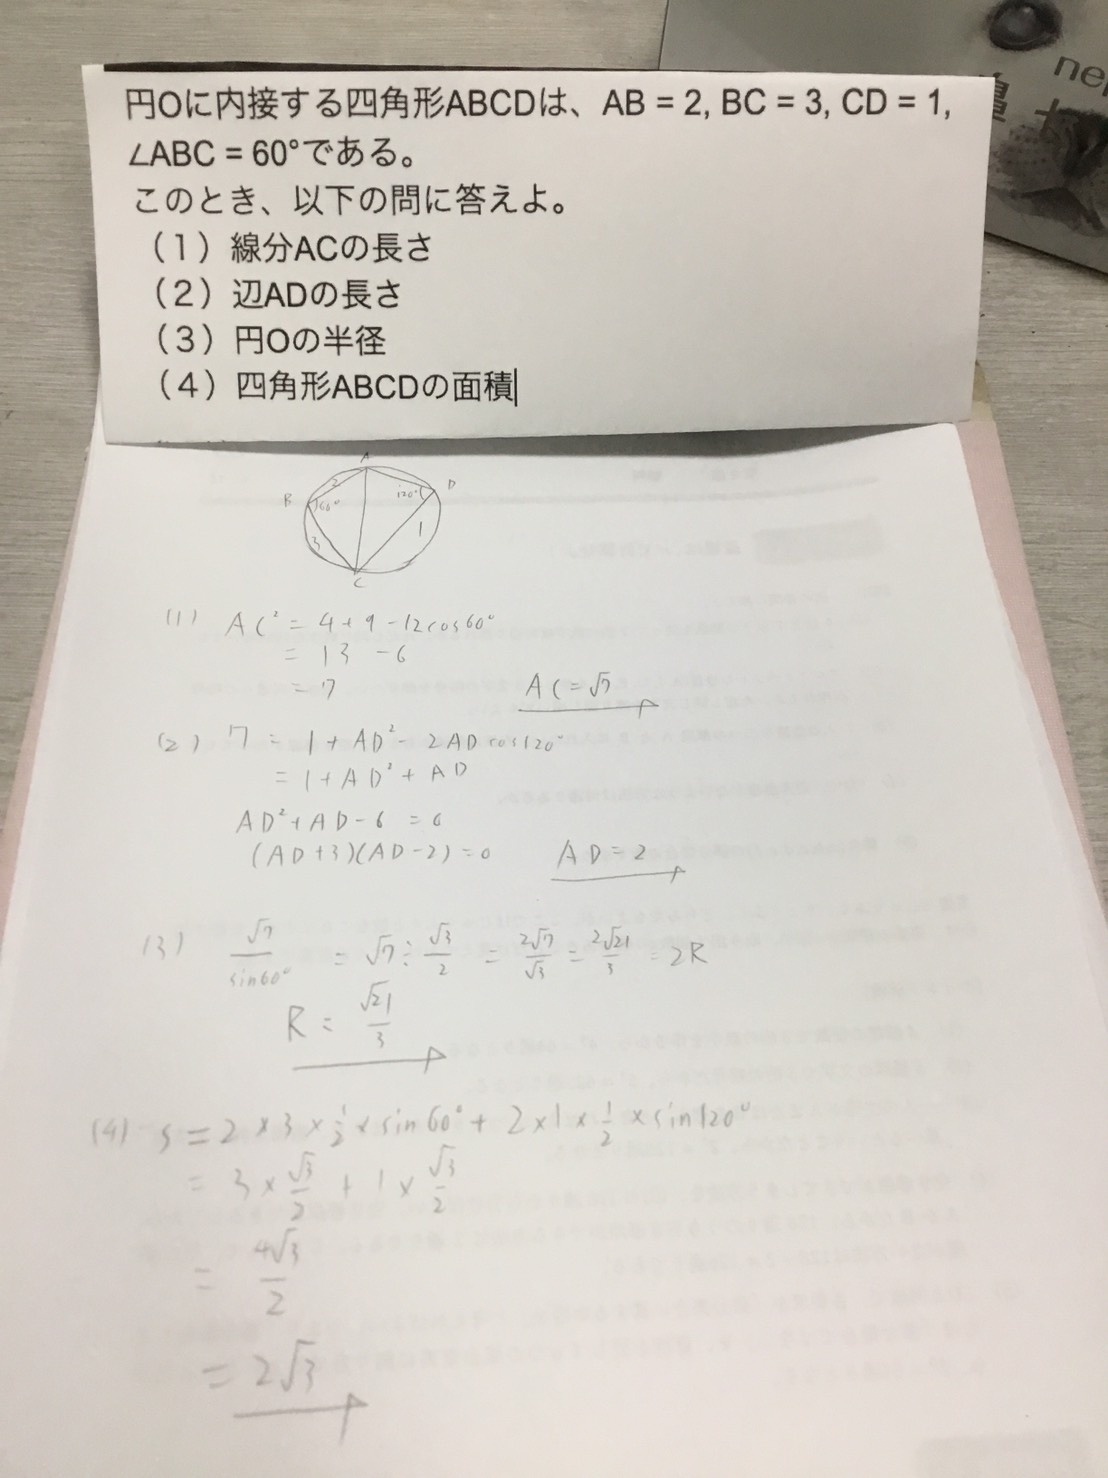 nep
円Oに内接する四角形ABCDは、AB = 2, BC = 3, CD = 1,
∠ABC = 60°である。
このとき、以下の問に答えよ。
（1）線分ACの長さ
（2）辺ADの長さ
（3）円Oの半径
（4）四角形ABCDの面積
A
B 2 60° 120° D
3 1
C
(1) AC² = 4 + 9 - 12cos60°
= 13 - 6
= 7 AC = √7
(2) 7 = 1 + AD² - 2AD cos120°
= 1 + AD² + AD
AD² + AD - 6 = 0
(AD + 3)(AD - 2) = 0 AD = 2
(3) √7/sin60° = √7 ÷ √3/2 = 2√7/√3 = 2√21/3 = 2R
R = √21/3
(4) S = 2 × 3 × 1/2 × sin60° + 2 × 1 × 1/2 × sin120°
= 3 × √3/2 + 1 × √3/2
= 4√3/2
= 2√3